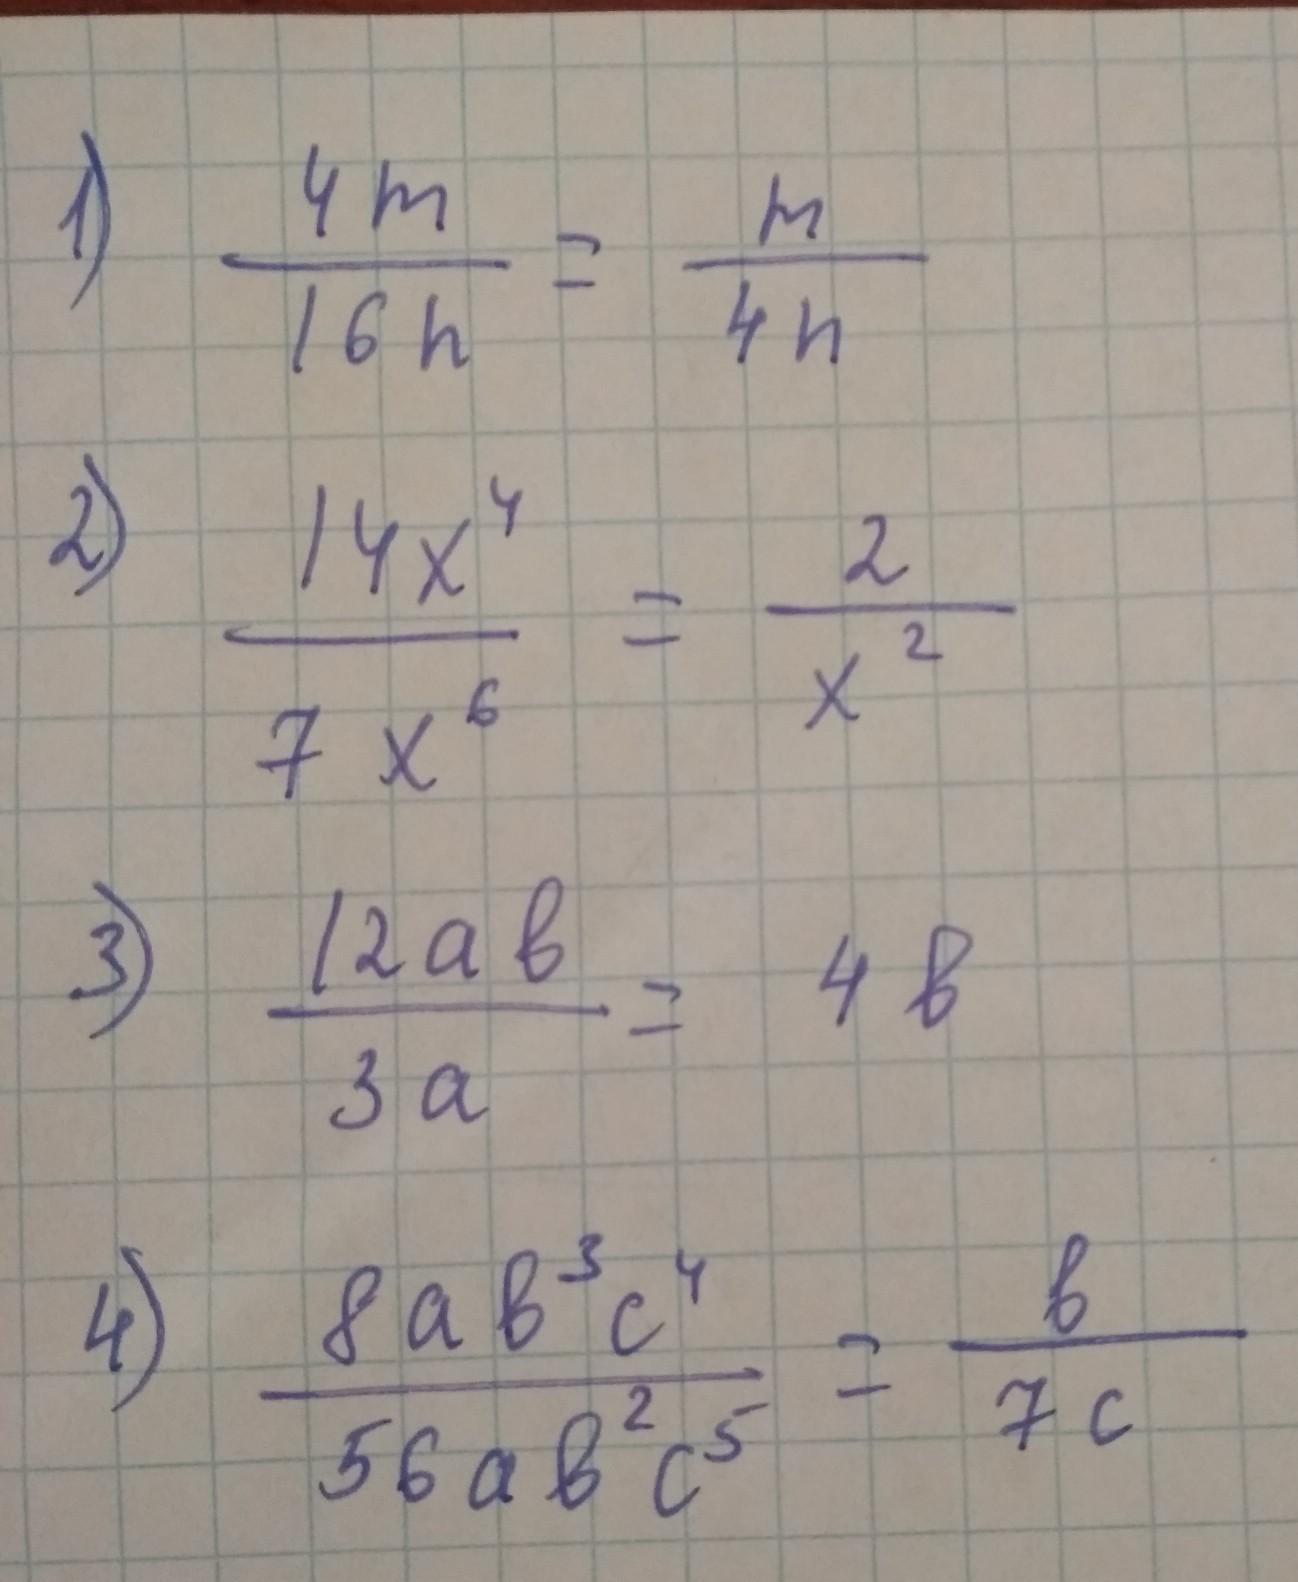 1) 4m/16n = m/4n
2) 14x⁴/7x⁶ = 2/x²
3) 12ab/3a = 4b
4) 8ab³c⁴/56ab²c⁵ = b/7c